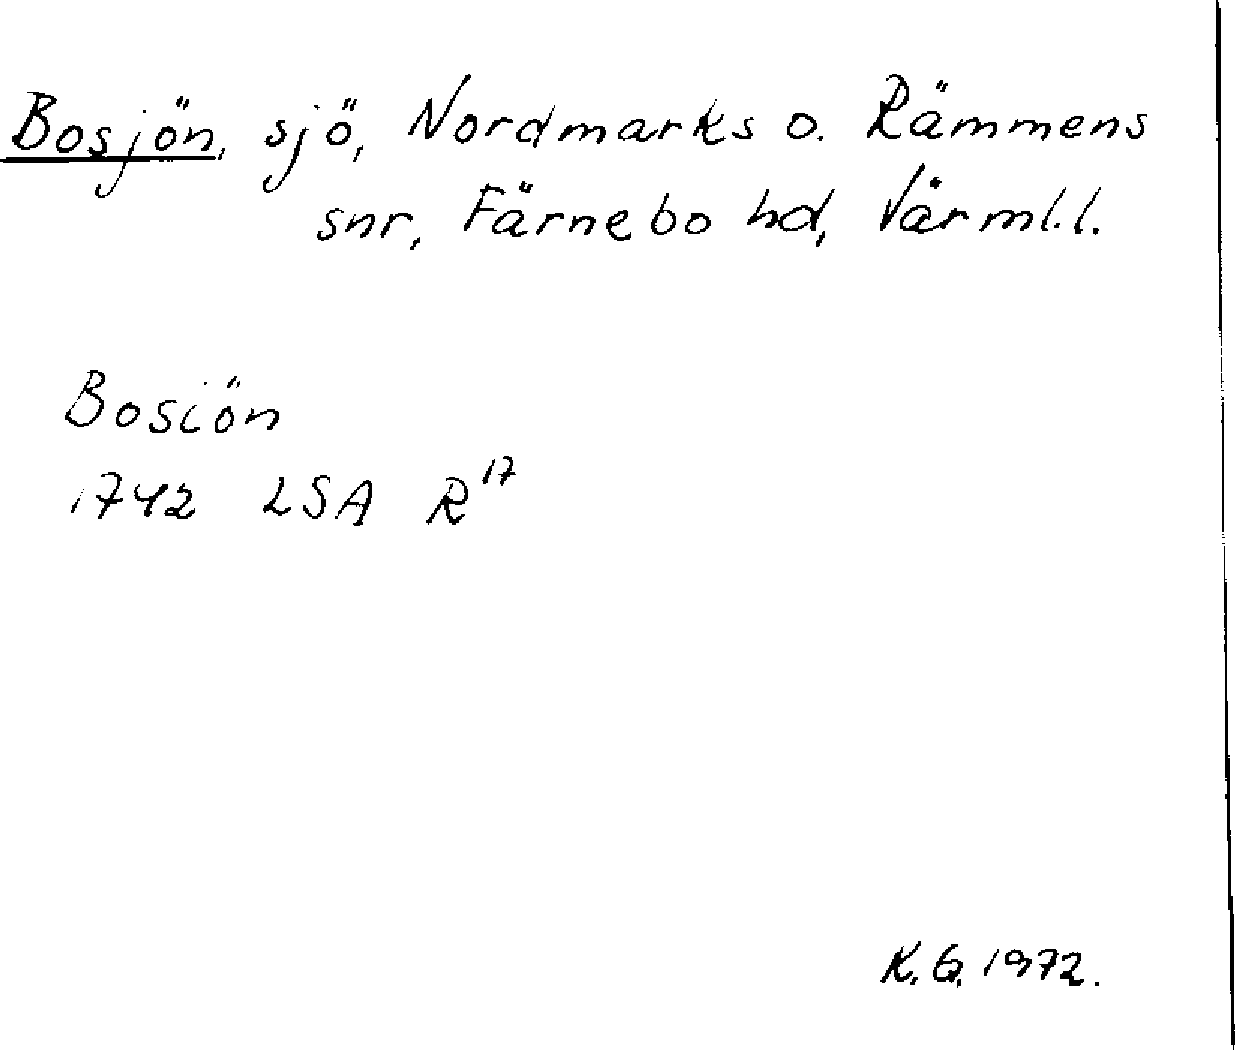 Bosjön, sjö, Nordmarks o. Rämmens
snr, Färnebo hd, Värml. l.
Bosiön
1742 LSA R17
K.G. 1972.